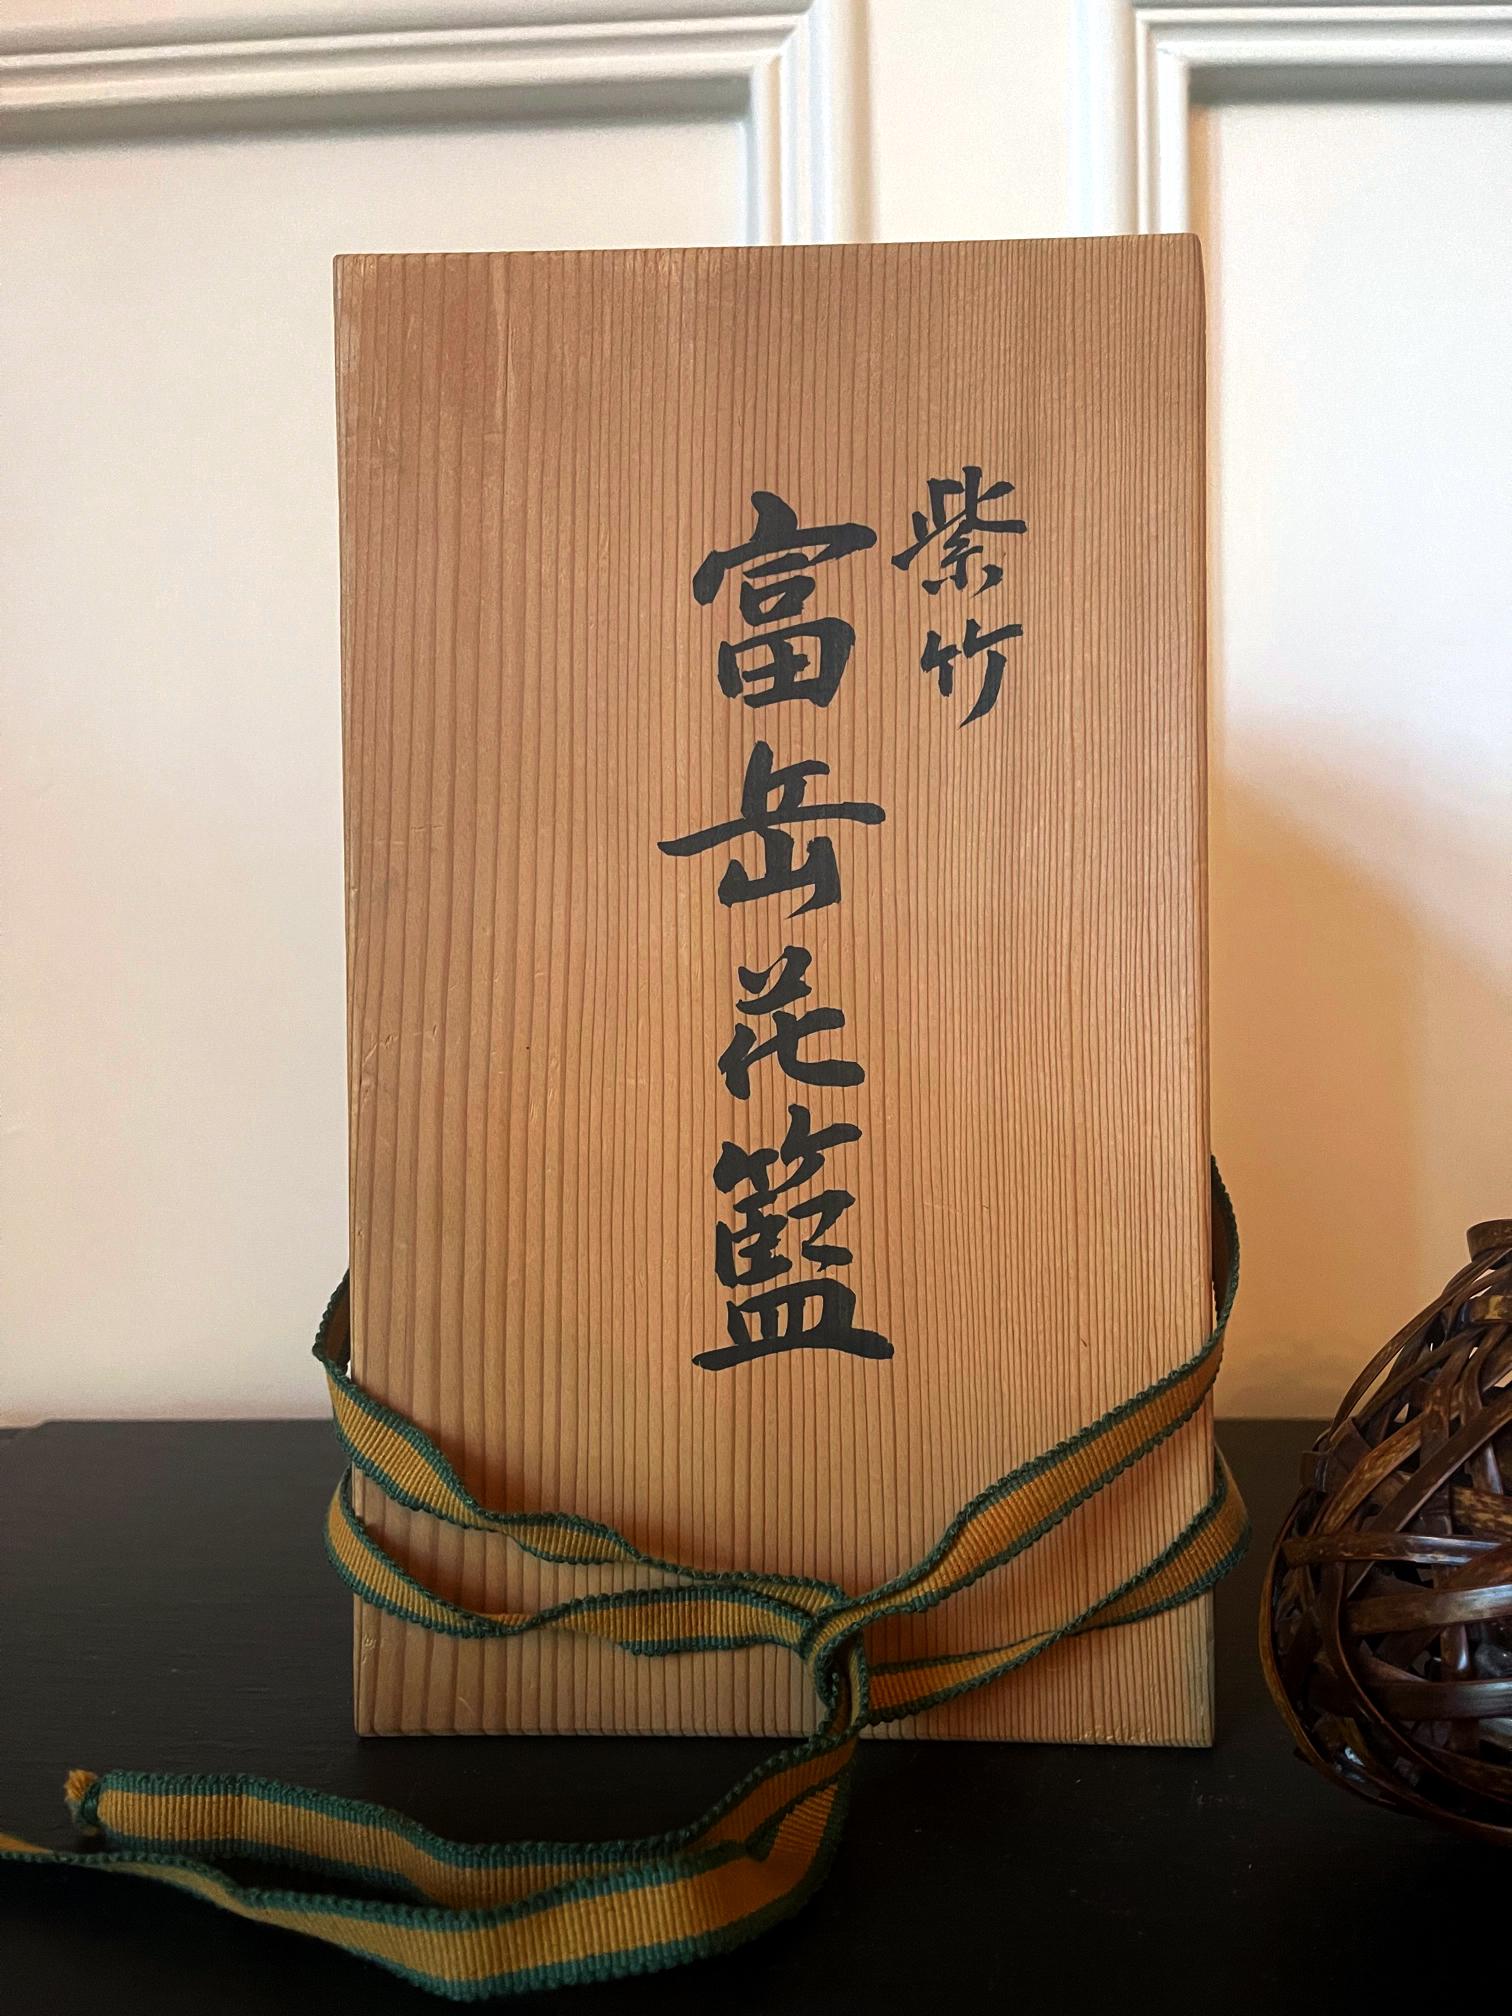 紫竹
富岳花籃